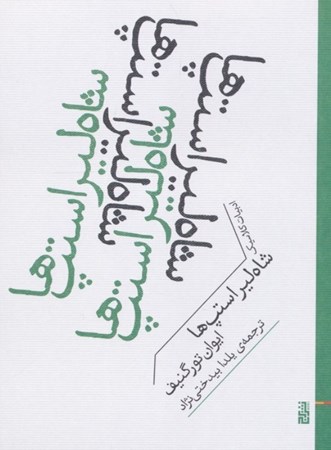 شاه‌لیر استپ‌ها
شاه‌لیر استپ‌ها
شاه‌لیر استپ‌ها
شاه‌لیر استپ‌ها
ادبیات کلاسیک
شاه‌لیر استپ‌ها
ایوان تورگنیف
ترجمه‌ی یلدا بیدختی‌نژاد